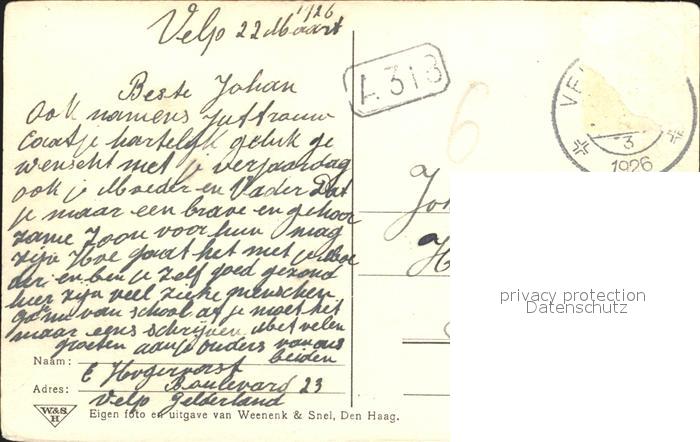 Velp 22 Maart 1926
Beste Johan
Ook namens Juffrouw
Caatje hartelijk geluk ge
wenscht met je verjaardag
ook je Moeder en Vader Dat
je maar een brave en gehoor
zame Zoon voor hun mag
zijn Hoe gaat het met je Moe
der en ben je zelf goed gezond
hier zijn veel zieke menschen
van school af je moet het
maar eens schrijven Met velen
groeten aan je ouders van ons
beiden
Naam: E Hogervorst
Adres: Boulevard 23
Velp Gelderland
W&S
H
Eigen foto en uitgave van Weenenk & Snel, Den Haag.
A 313
6
VE
3
1926
Jo
H
privacy protection
Datenschutz